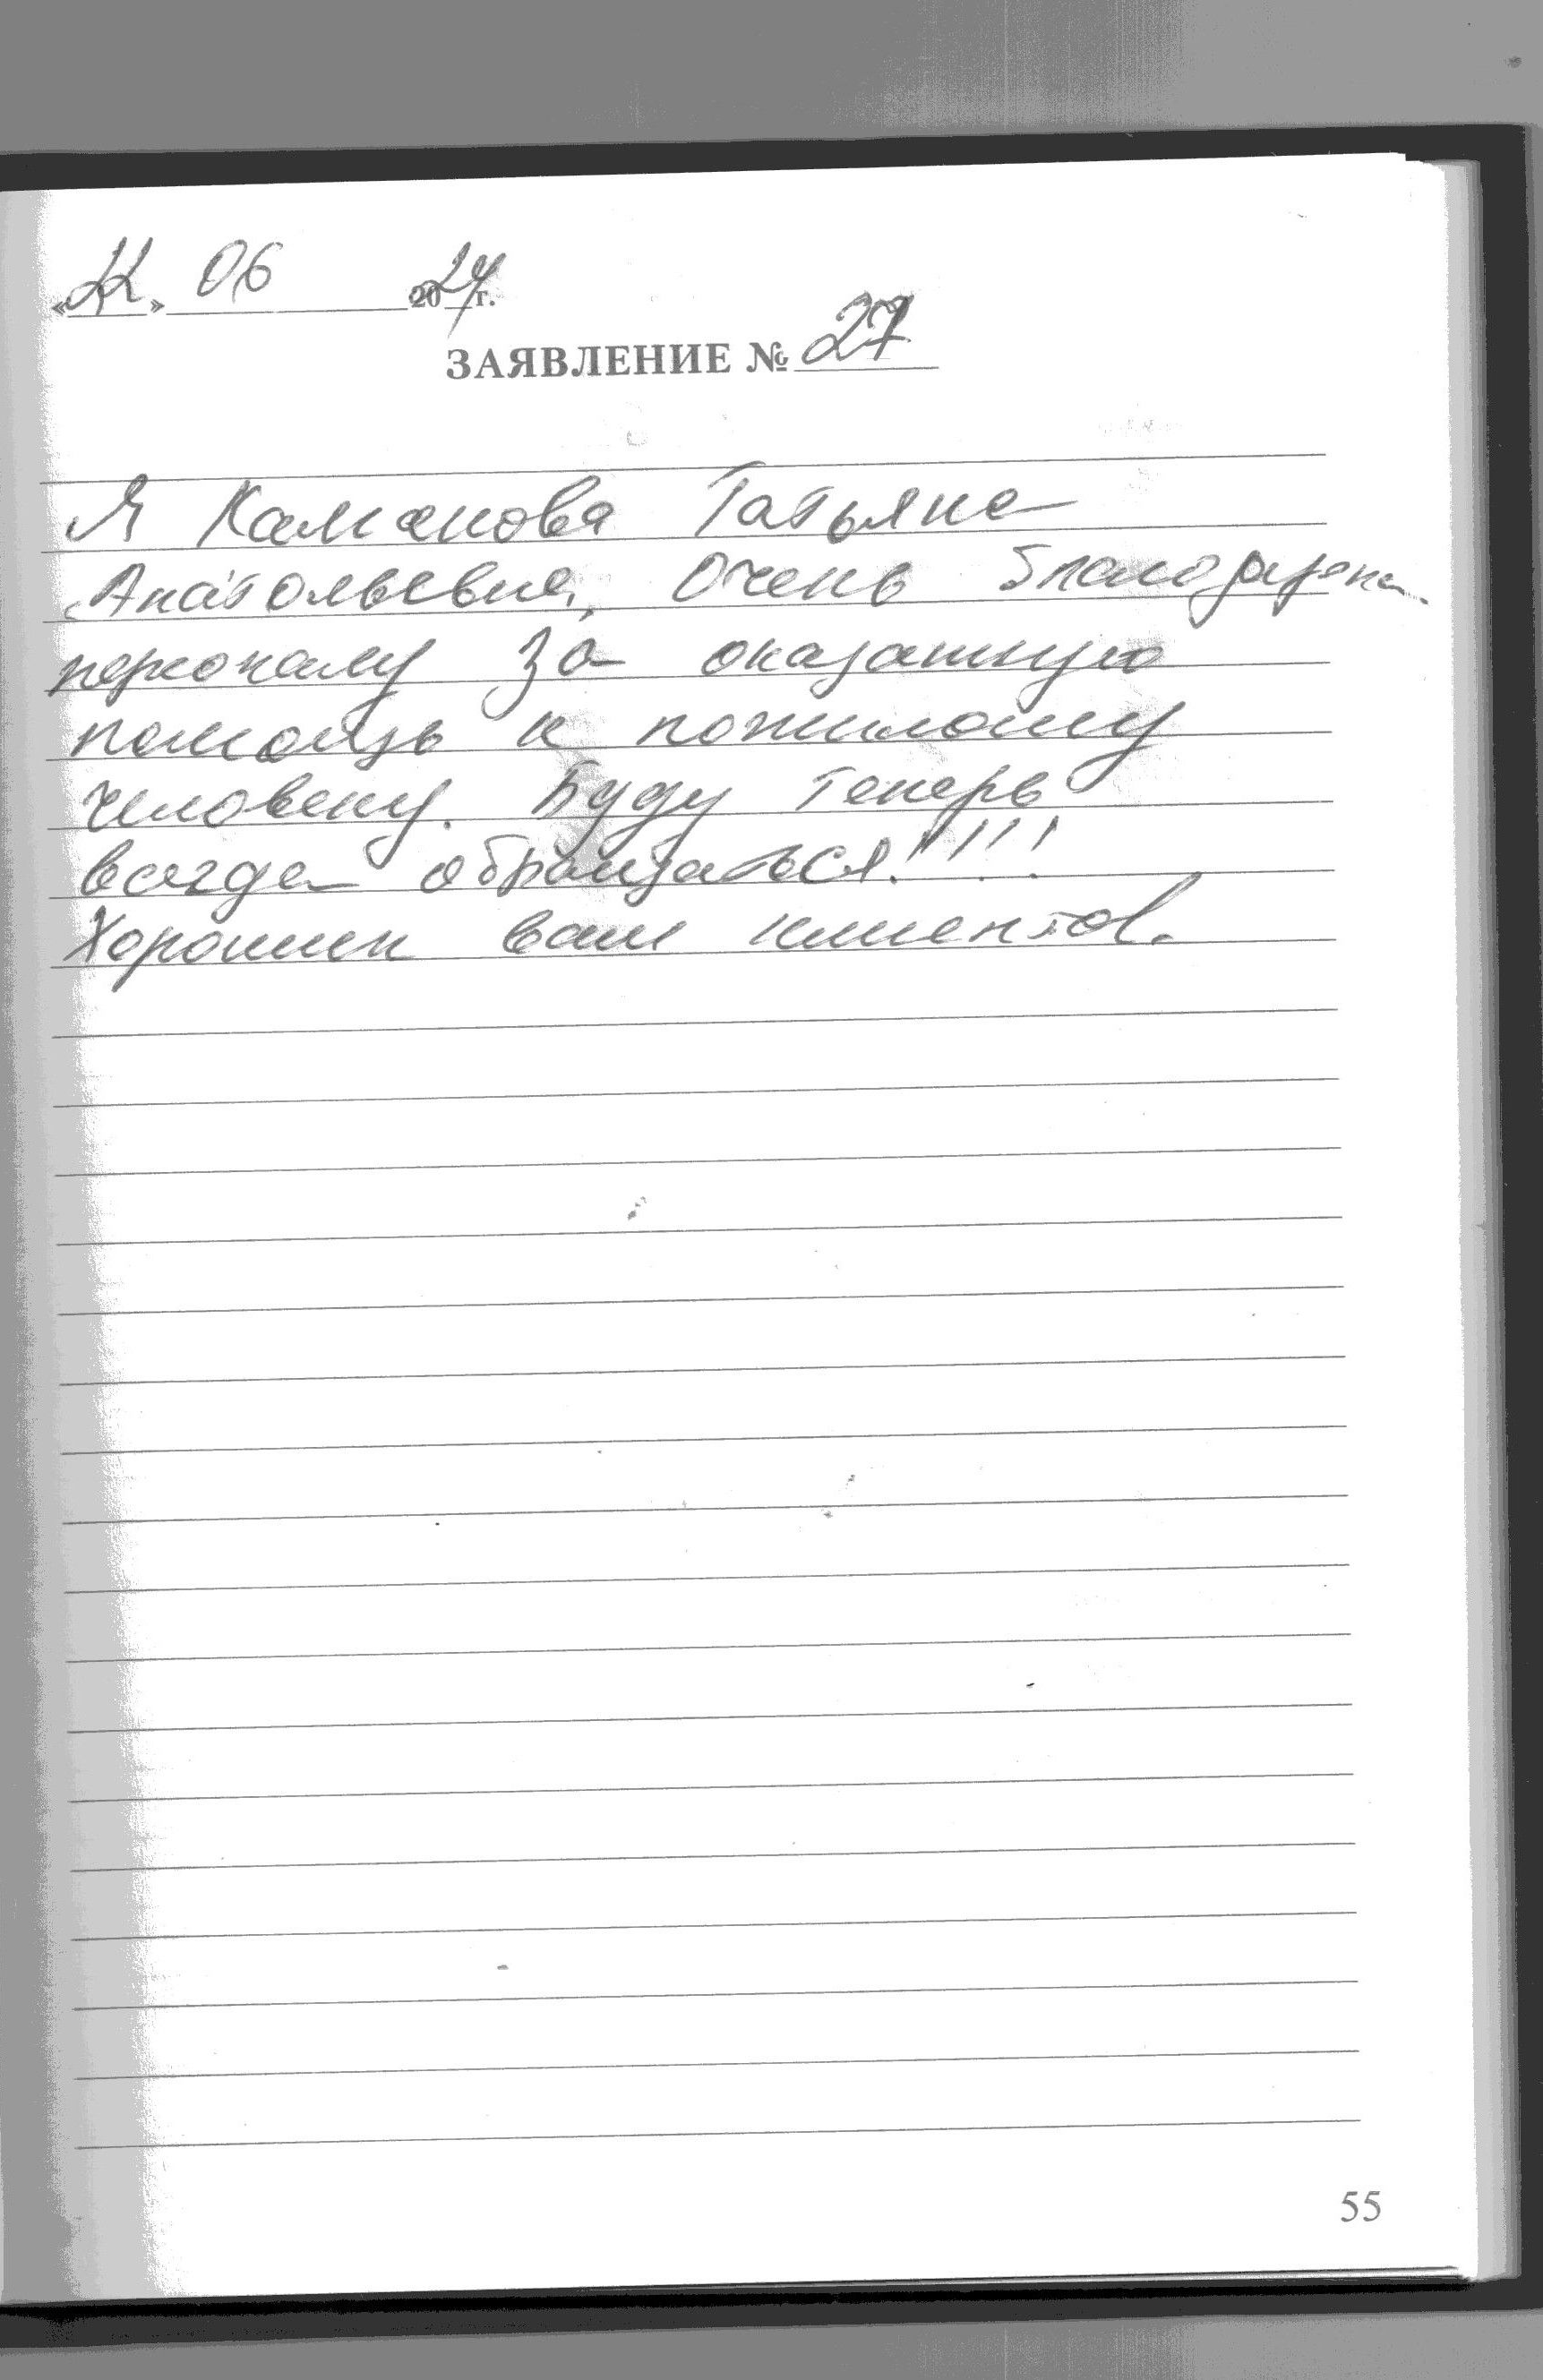 «22» 06 2024г.
ЗАЯВЛЕНИЕ № 27
Я Каманова Татьяна
Анатольевна, Очень благодарна
персоналу за оказанную
помощь к пожилому
человеку. Буду теперь
всегда обращаться!!!!
Хороших вам клиентов.
55